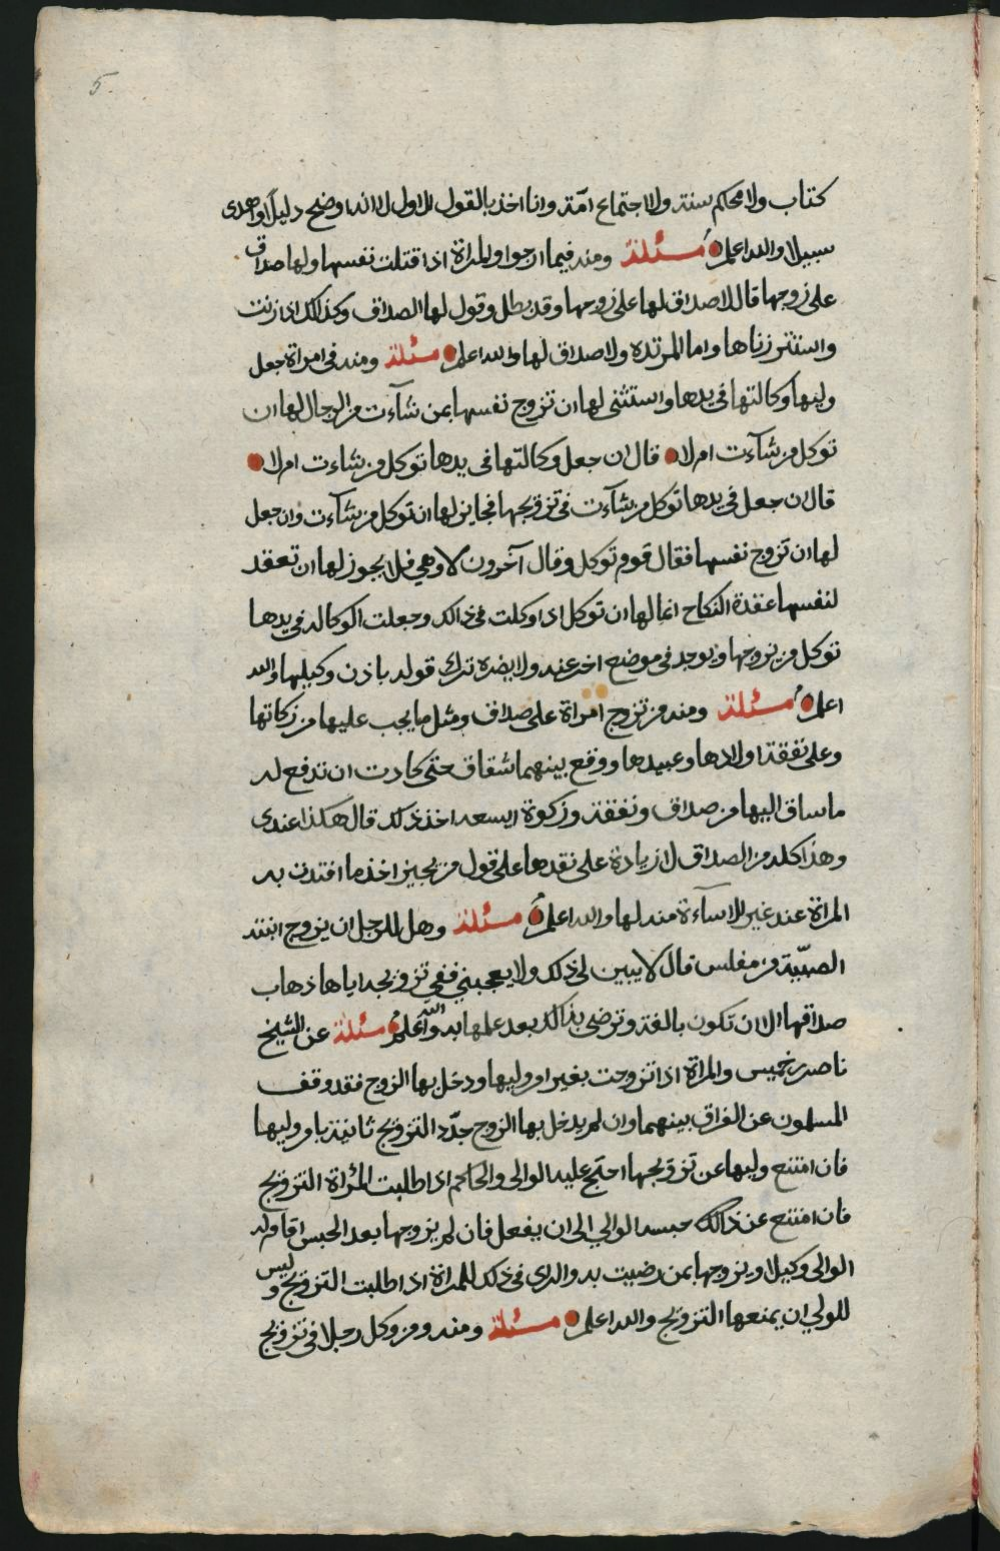 5.
كتاب ولا محكم سنة ولا اجتماع امّة وانا اخذ بالقول الاول لانه اوضح دليلاً واهدى
سبيلا والله اعلم مسئلة ومنه فيما ارجوا والمراة اذا قتلت نفسها ولها صداق
على زوجها قال لاصداق لها على زوجها وقد بطل وقول لها الصداق وكذلك اذا زنت
واستتر زناها واما المرتده ولا صداق لها والله اعلم مسئلة ومنه في امراة جعل
وليها وكالتها في يدها واستثنى لها ان تزوج نفسها بمن شآءت من الرجال لها ان
توكل من شآءت ام لا قال ان جعل وكالتها في يدها توكل من شاءت ام لا
قال ان جعل في يدها توكل من شآءت في تزويجها فجايز لها ان توكل من شآءت وان جعل
لها ان تزوج نفسها فقال قوم توكل وقال آخرون لا وهي فلا يجوز لها ان تعقد
لنفسها عقدة النكاح انما لها ان توكل اذا وكلت في ذالك وجعلت الوكالة في يدها
توكل من يزوجها ويوجد في موضع اخر عنه ولا يضره ترك قوله باذن وكيلها والله
اعلم مسئلة ومنه من تزوج امراة على صداق ومثل ما يجب عليها من زكاتها
وعلى نفقة اولادها وعبيدها ووقع بينهما شقاق حتى كادت ان تدفع له
ما ساق اليها من صداق ونفقة وزكوة ايسعه اخذ ذلك قال هكذا عندي
وهذا كله من الصداق لا زيادة على نقدها على قول من يجيز اخذ ما افتدت به
المراة عند غير الاسآءة منه لها والله اعلم مسئلة وهل للرجل ان يزوج ابنته
الصبيّة من مفلس قال لا يبين لي ذلك ولا يعجبني ففي تزويجه اياها ذهاب
صداقها الا ان تكون بالغة وترضى بذالك بعد علمها به والله اعلم مسئلة عن الشيخ
ناصر بن خميس والمراة اذا تزوجت بغير امر وليها ودخل بها الزوج فقد وقف
المسلمون عن الفراق بينهما وان لم يدخل بها الزوج جدّد التزويج ثانية بامر وليها
فان امتنع وليها عن تزويجها احتج عليه الوالي والحاكم اذا طلبت المرأة التزويج
فان امتنع عن ذالك حبسه الوالي الى ان يفعل فان لم يزوجها بعد الحبس اقام له
الوالي وكيلا ويزوجها بمن رضيت به والراي في ذلك للمراة اذا طلبت التزويج وليس
للولي ان يمنعها التزويج والله اعلم مسئلة ومنه ومن وكل رجلا في تزويج